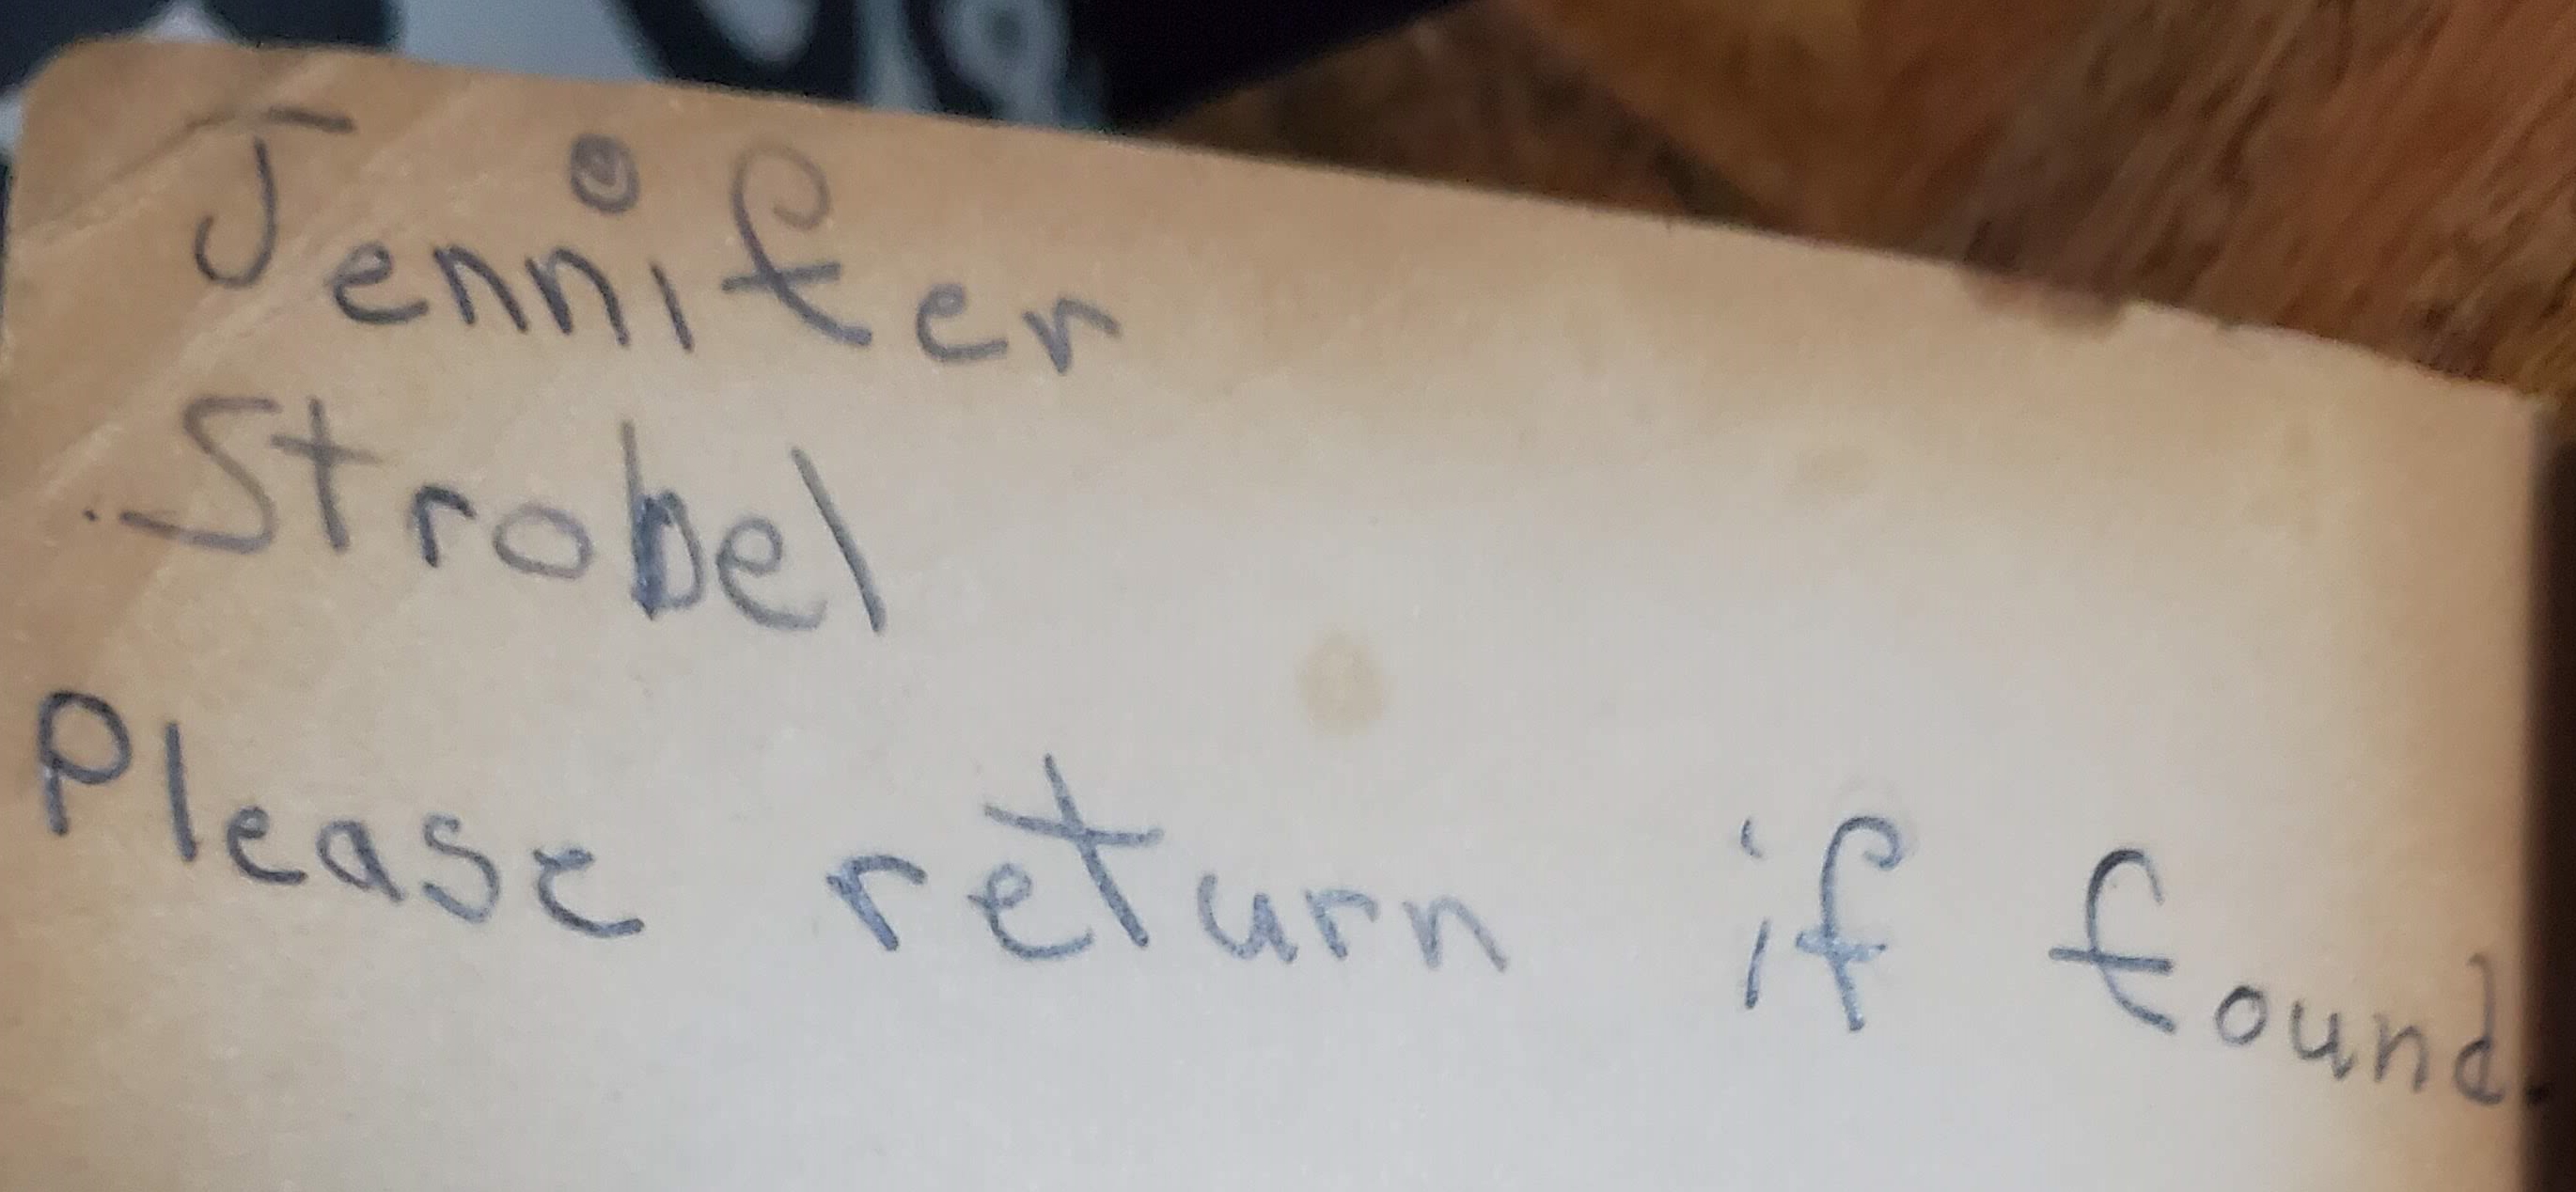 Jennifer
Strobel
Please return if found.